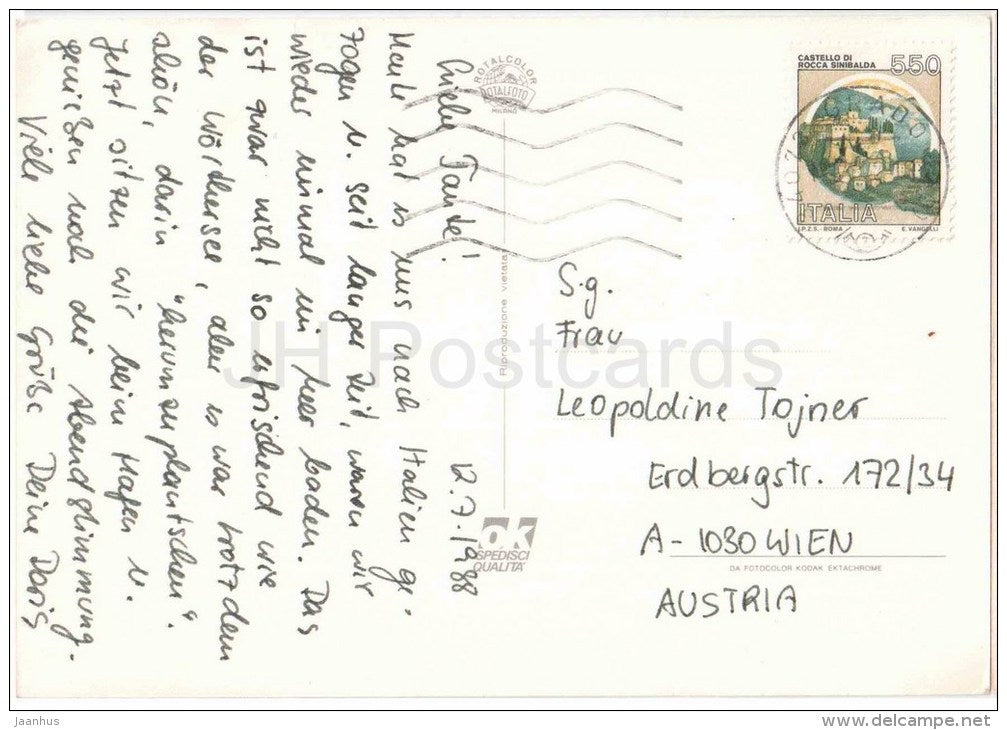 12.7.1988
Liebe Tante!
Heute hat es uns nach Italien ge-
zogen u. seit langer Zeit, waren wir
wieder einmal im Meer baden. Das
ist zwar nicht so erfrischend wie
der Wörthersee, aber es war trotzdem
schön, darin "herumzuplantschen".
Jetzt sitzen wir beim Hafen u.
genießen noch die Abendstimmung.
Viele liebe Grüße Deine Doris
ROTALCOLOR
ROTALFOTO
MILANO
Riproduzione vietata
OK
SPEDISCI
QUALITA'
CASTELLO DI
ROCCA SINIBALDA
550
ITALIA
I.P.Z.S. - ROMA E. VANGELLI
GRADO
S.g.
Frau
Leopoldine Tojner
Erdbergstr. 172/34
A-1030 WIEN
AUSTRIA
DA FOTOCOLOR KODAK EKTACHROME
JH Postcards
jaanhus
www.delcampe.net